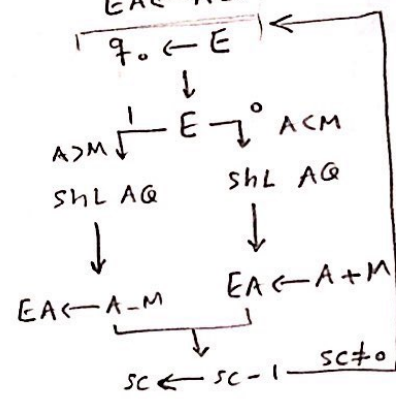 EA←
q₀ ← E
1 E 0 A<M
A>M
ShL AQ ShL AQ
EA←A-M EA←A+M
SC←SC-1 SC≠0